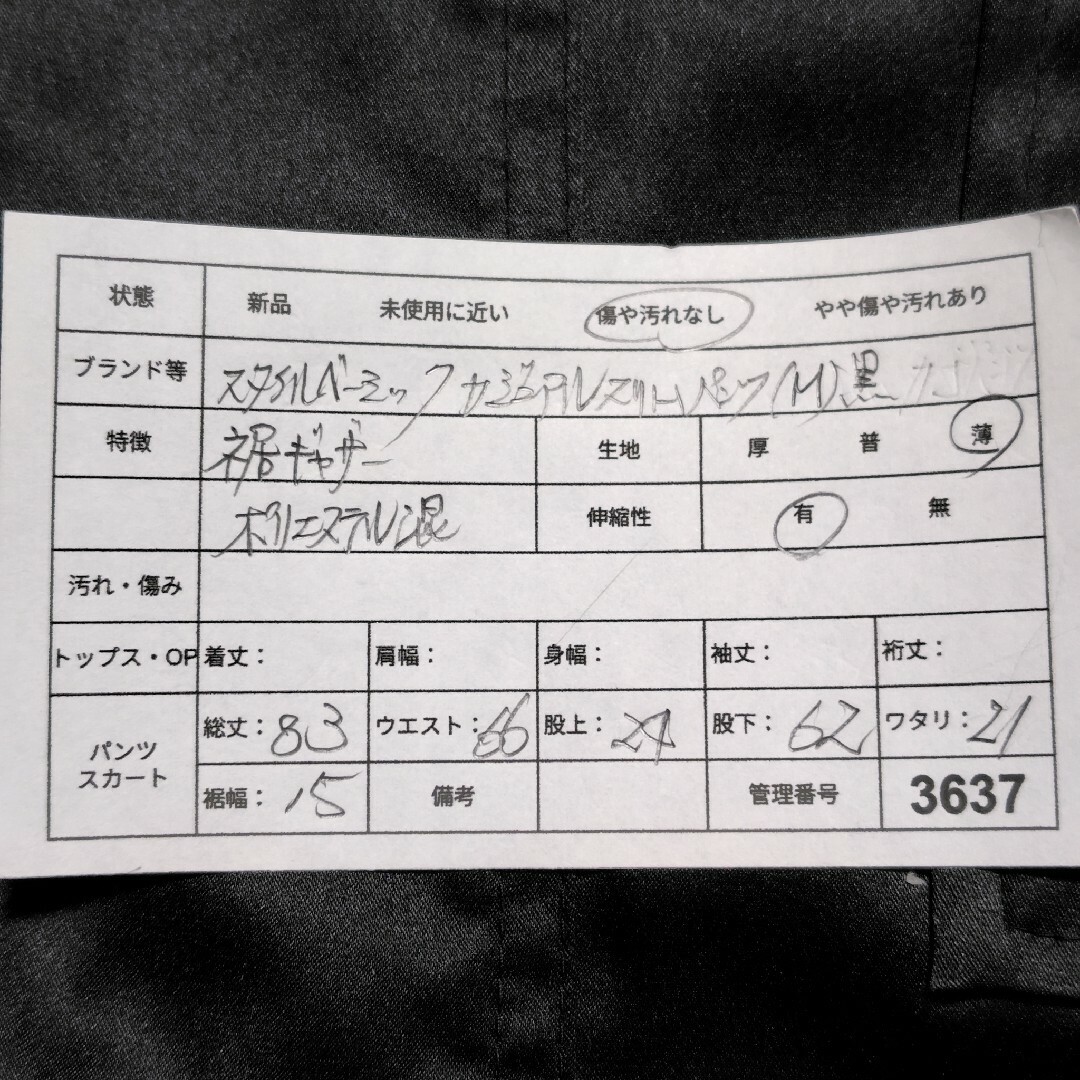 状態 新品 未使用に近い 傷や汚れなし やや傷や汚れあり
ブランド等 スタイルベーシック カジュアルスリムパンツ(M)黒
特徴 裾ギャザー 生地 厚 普 薄
ポリエステル混 伸縮性 有 無
汚れ・傷み
トップス・OP 着丈: 肩幅: 身幅: 袖丈: 裄丈:
パンツ スカート 総丈:83 ウエスト:66 股上: 股下:62 ワタリ:21
裾幅:15 備考 管理番号 3637